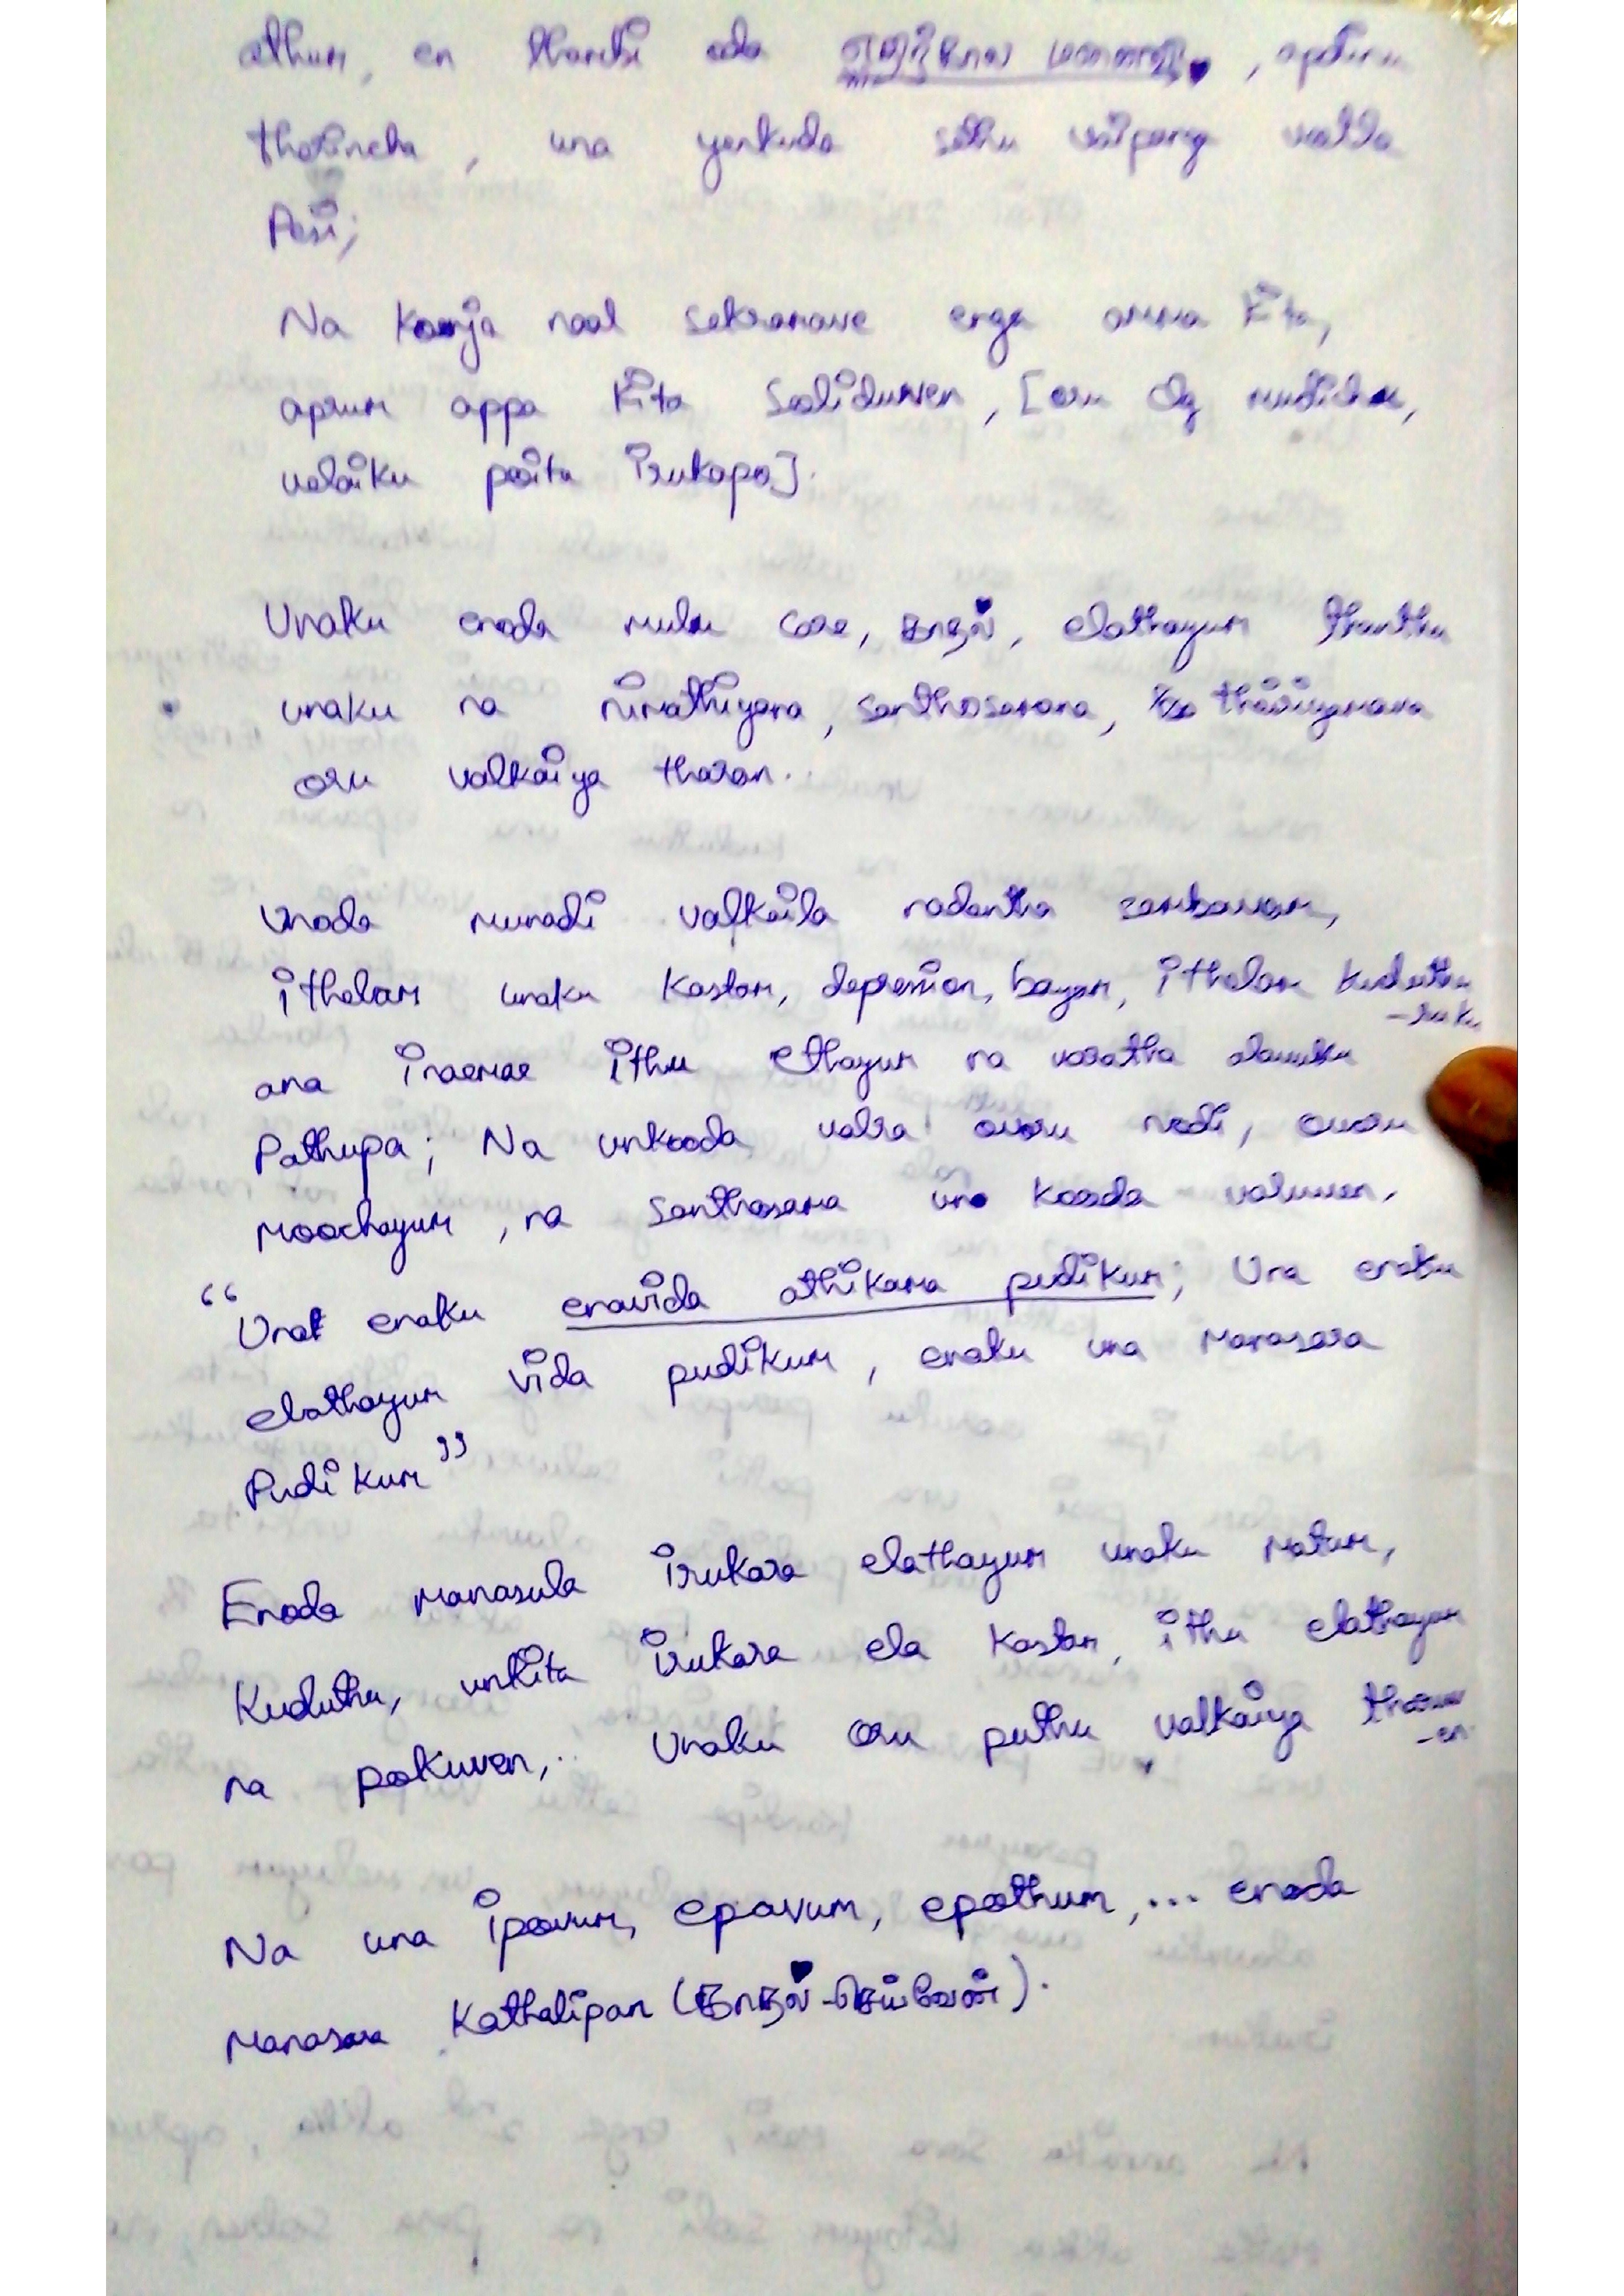 athum, en thambi oda , apdinu
therincha, una yenkuda sethu vaipanga veetla
Pesi;
Na konja naal sekaramave enga amma kita,
aprum appa kita Soliduven, [oru dg mudicha,
velaiku poita irukapo].
Unaku enoda mulu care, காதல், elathayum thanthu
unaku na nimathiyana, santhosamana, thairiyamana
oru valkaiya tharan..
Unoda munadi valkaila nadantha sambavam,
ithelam unaku kastam, depression, bayam, ithelam kuduthu
-ruku
ana inaemae ithu ethayum na varatha alavuku
Pathupa; Na unkooda valra ovoru nodi, ovoru
moochayum, na santhosama una kooda valuven.
“Una enaku enavida athikama pudikum; Una enaku
elathayum vida pudikum, enaku una manasara
Pudikum”
Enoda manasula irukara elathayum unaku matum,
Kuduthu, unkita irukara ela kastam, ithu elathayum
na pokuven,.. Unaku oru puthu valkaiya tharuv
-en
Na una ipovum, epavum, epothum,... enoda
Manasara Kathalipan (காதல்-செய்வேன்).